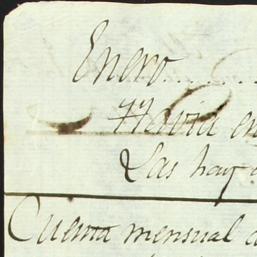 Enero......
Havia en
Las hay
Cuenta mensual d